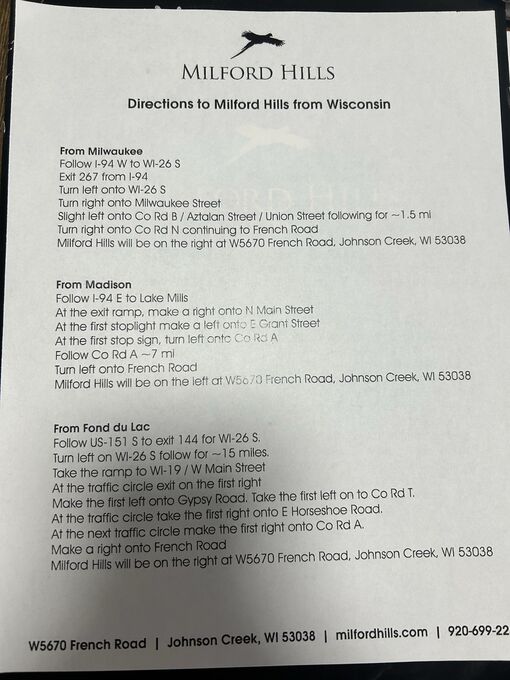 MILFORD HILLS
Directions to Milford Hills from Wisconsin
From Milwaukee
Follow I-94 W to WI-26 S
Exit 267 from I-94
Turn left onto WI-26 S
Turn right onto Milwaukee Street
Slight left onto Co Rd B / Aztalan Street / Union Street following for ~1.5 mi
Turn right onto Co Rd N continuing to French Road
Milford Hills will be on the right at W5670 French Road, Johnson Creek, WI 53038
From Madison
Follow I-94 E to Lake Mills
At the exit ramp, make a right onto N Main Street
At the first stoplight make a left onto E Grant Street
At the first stop sign, turn left onto Co Rd A
Follow Co Rd A ~7 mi
Turn left onto French Road
Milford Hills will be on the left at W5670 French Road, Johnson Creek, WI 53038
From Fond du Lac
Follow US-151 S to exit 144 for WI-26 S.
Turn left on WI-26 S follow for ~15 miles.
Take the ramp to WI-19 / W Main Street
At the traffic circle exit on the first right
Make the first left onto Gypsy Road. Take the first left on to Co Rd T.
At the traffic circle take the first right onto E Horseshoe Road.
At the next traffic circle make the first right onto Co Rd A.
Make a right onto French Road
Milford Hills will be on the right at W5670 French Road, Johnson Creek, WI 53038
W5670 French Road | Johnson Creek, WI 53038 | milfordhills.com | 920-699-22